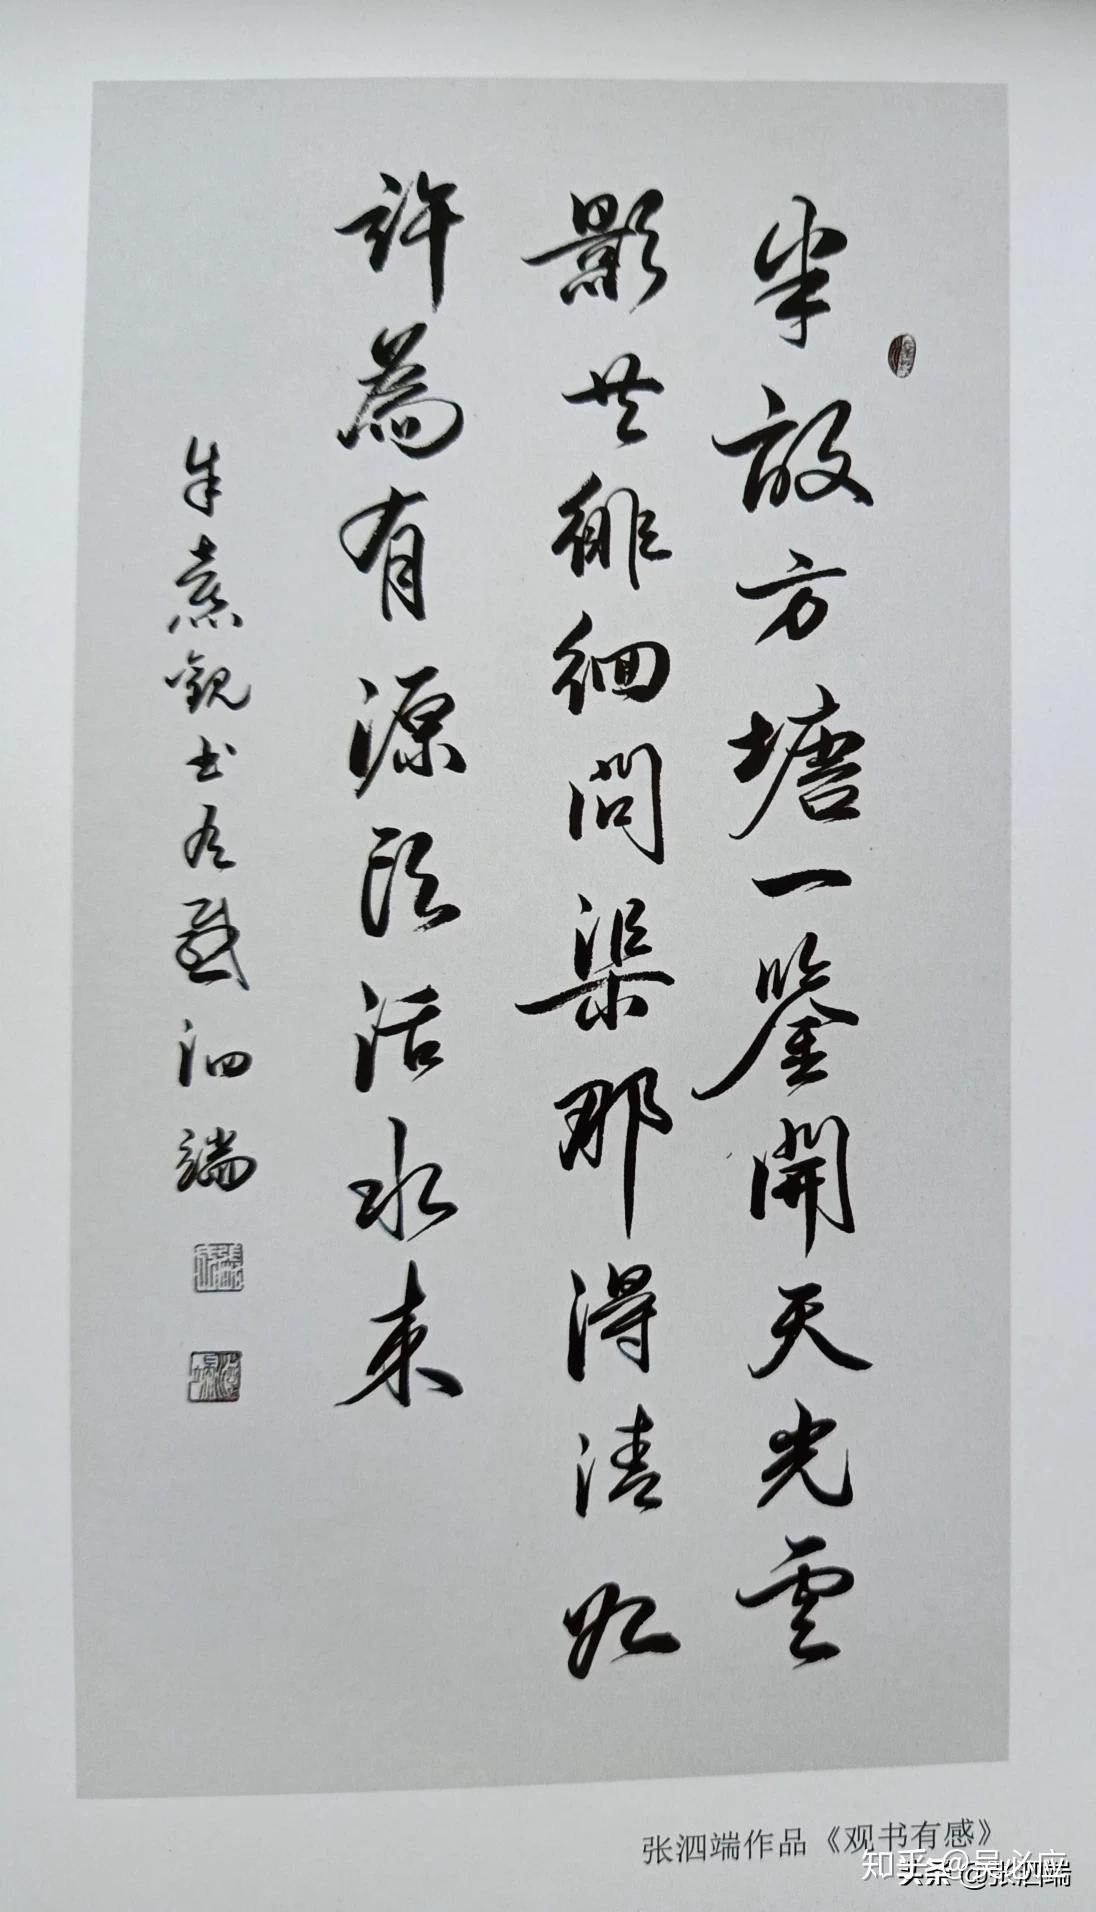 半畝方塘一鑒開天光雲
影共徘徊問渠那得清如
許為有源頭活水來
朱熹觀书有感泗端
张泗端作品《观书有感》
知乎 @吴必应
头条 @张泗端